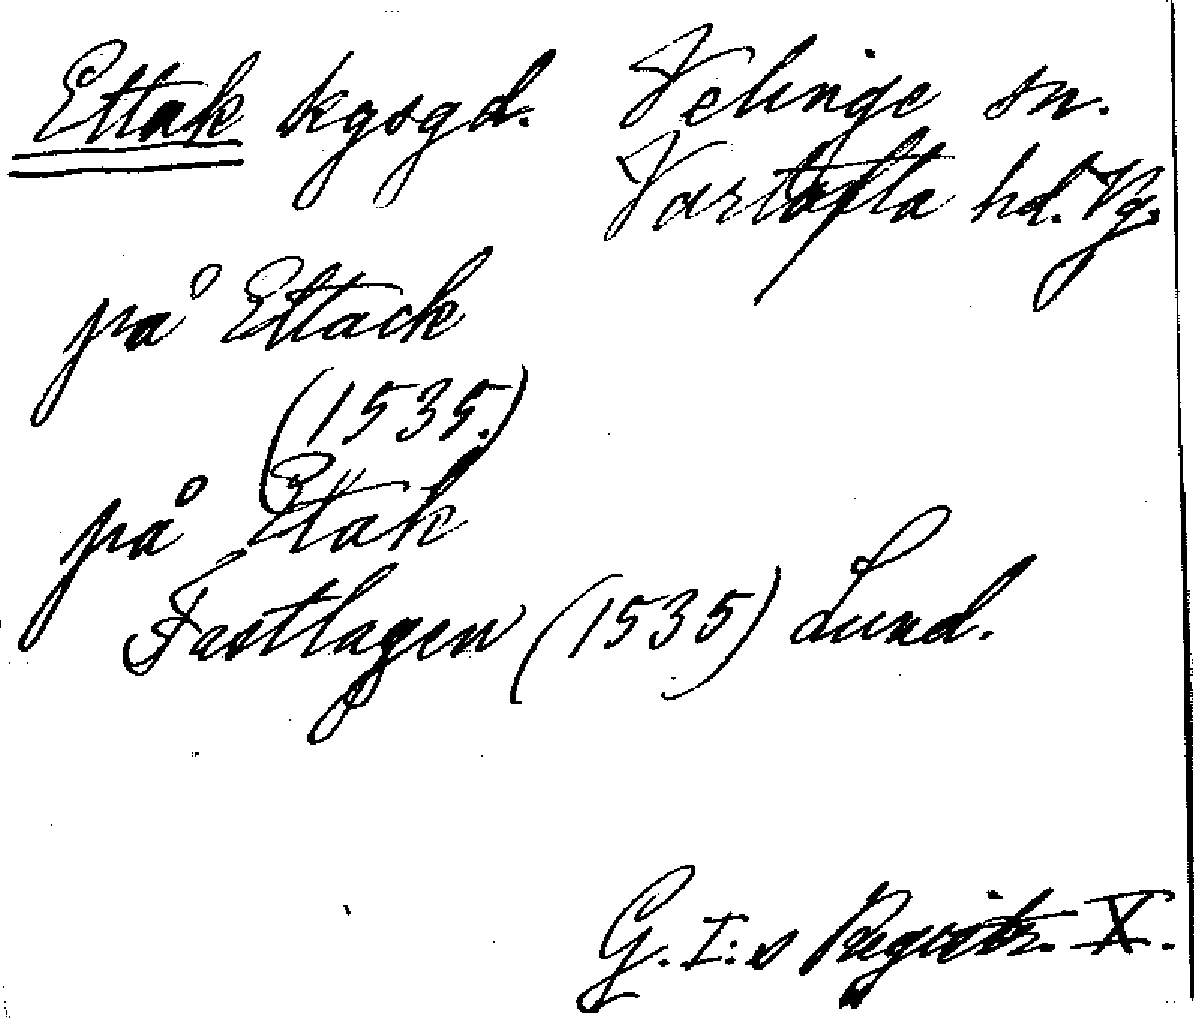 Ettak kgsgd. Velinge sn.
Vartofta hd. Vg.
på Ettack
(1535.)
på Ettak
Fastlagen (1535) Lund.
G. I:s Registr. X.